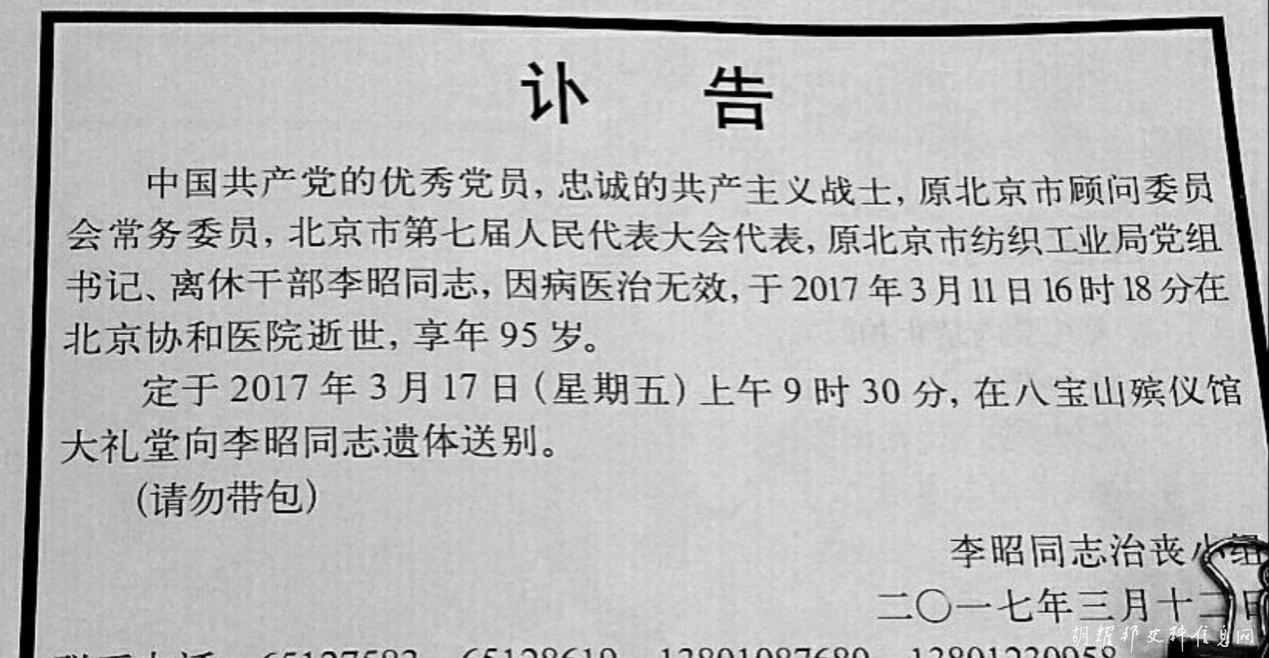 讣 告
中国共产党的优秀党员，忠诚的共产主义战士，原北京市顾问委员
会常务委员，北京市第七届人民代表大会代表，原北京市纺织工业局党组
书记、离休干部李昭同志，因病医治无效，于 2017 年 3 月 11 日 16 时 18 分在
北京协和医院逝世，享年 95 岁。
定于 2017 年 3 月 17 日（星期五）上午 9 时 30 分，在八宝山殡仪馆
大礼堂向李昭同志遗体送别。
（请勿带包）
李昭同志治丧小组
二〇一七年三月十二日
胡耀邦史料信息网